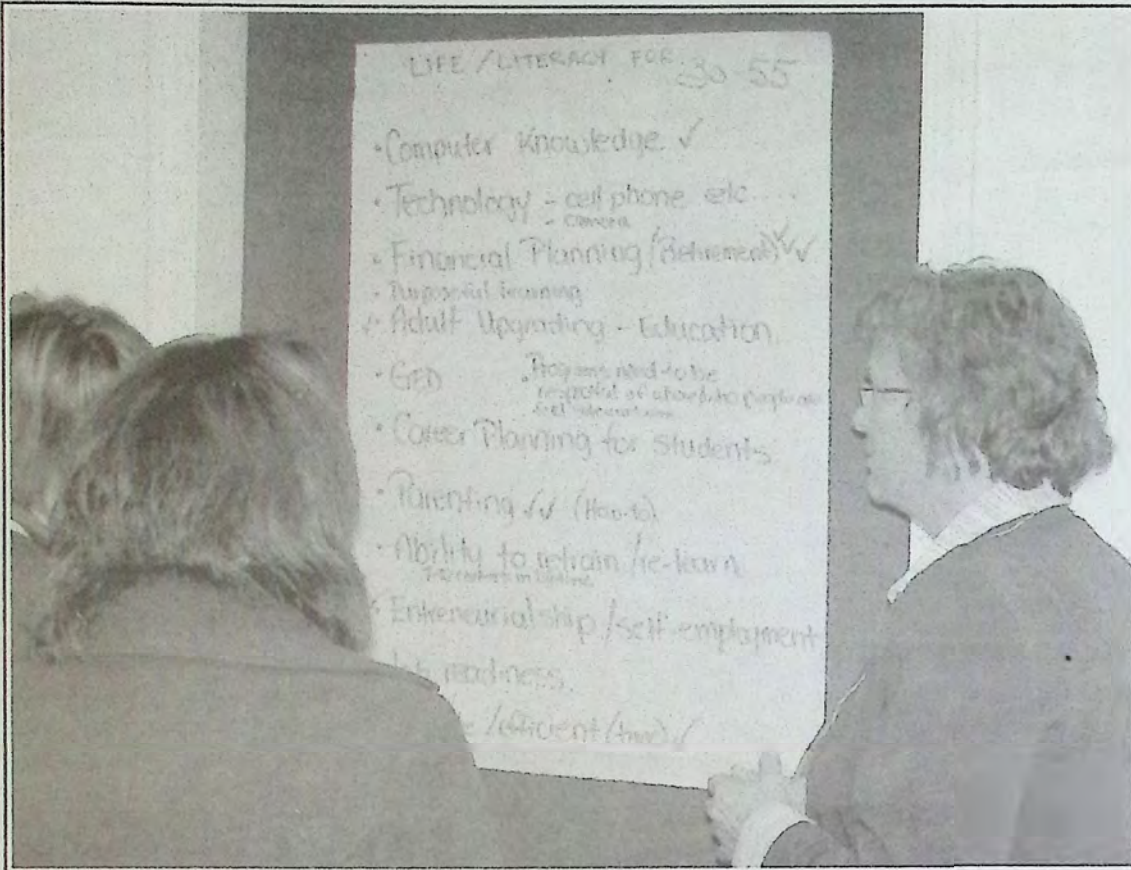 LIFE / LITERACY FOR 30-55
• Computer Knowledge ✓
• Technology - cell phone etc....
- camera
• Financial Planning (Retirement) ✓✓
• Purposeful learning
✓• Adult Upgrading - Education
• GED • Programs need to be
respectful of
• Career Planning for Students
• Parenting ✓✓ (How-to)
• Ability to retrain /re-learn
Entreneurialship /self-employment
Job readiness
/efficient (time) ✓